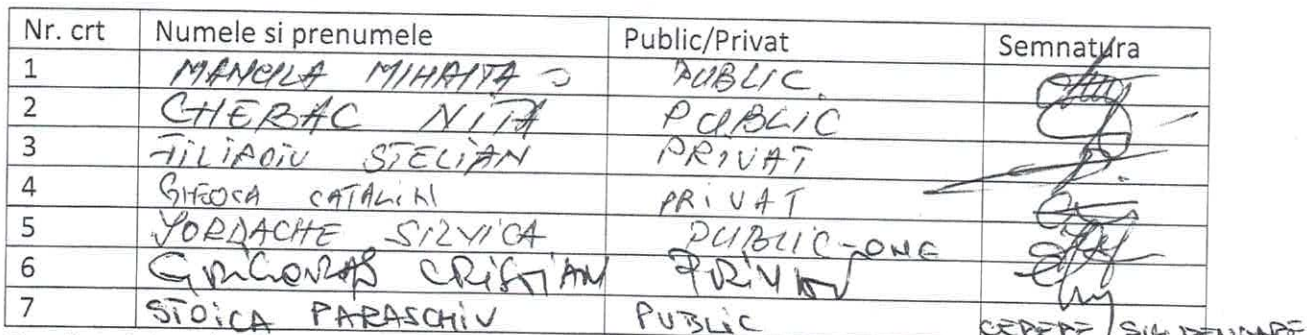 Nr. crt Numele si prenumele Public/Privat Semnatura
1 MANCILA MIHAITA PUBLIC.
2 CHEBAC NITA PUBLIC
3 STELIAN PRIVAT
4 GHEOCA CATALIN PRIVAT
5 IORDACHE SILVICA PUBLIC-ONG
6 GRIGORAS CRISTIAN PRIVAT
7 STOICA PARASCHIV PUBLIC